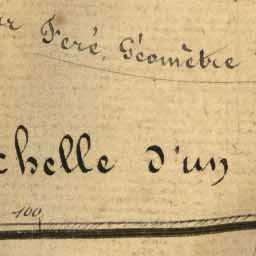 ar Feré, Géomètre
chelle d'un
100